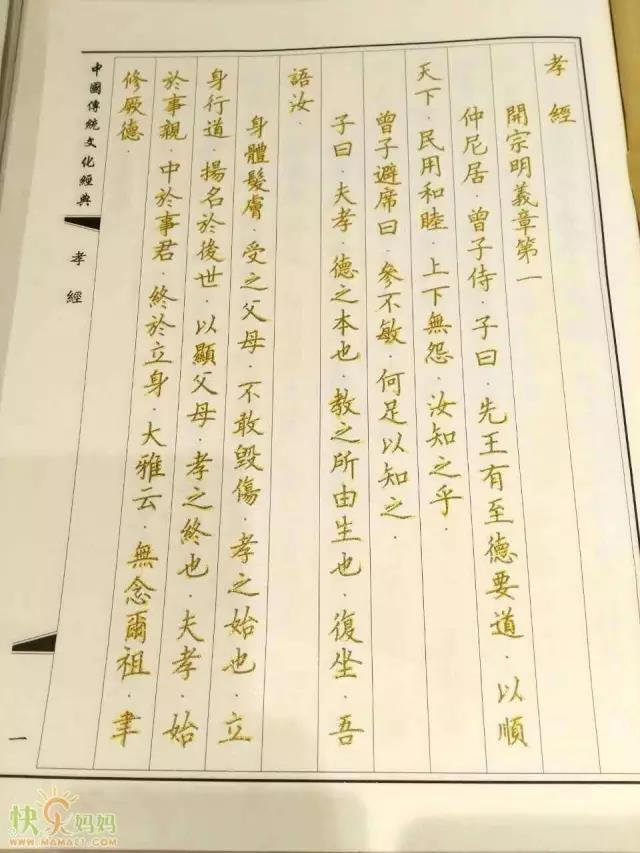 孝經
開宗明義章第一
仲尼居．曾子侍．子曰．先王有至德要道．以順
天下．民用和睦．上下無怨．汝知之乎．
曾子避席曰．參不敏．何足以知之．
子曰．夫孝．德之本也．教之所由生也．復坐．吾
語汝．
身體髮膚．受之父母．不敢毀傷．孝之始也．立
身行道．揚名於後世．以顯父母．孝之終也．夫孝．始
於事親．中於事君．終於立身．大雅云．無念爾祖．聿
修厥德．
中國傳統文化經典
孝經
一
快乐妈妈
WWW.MAMA61.COM